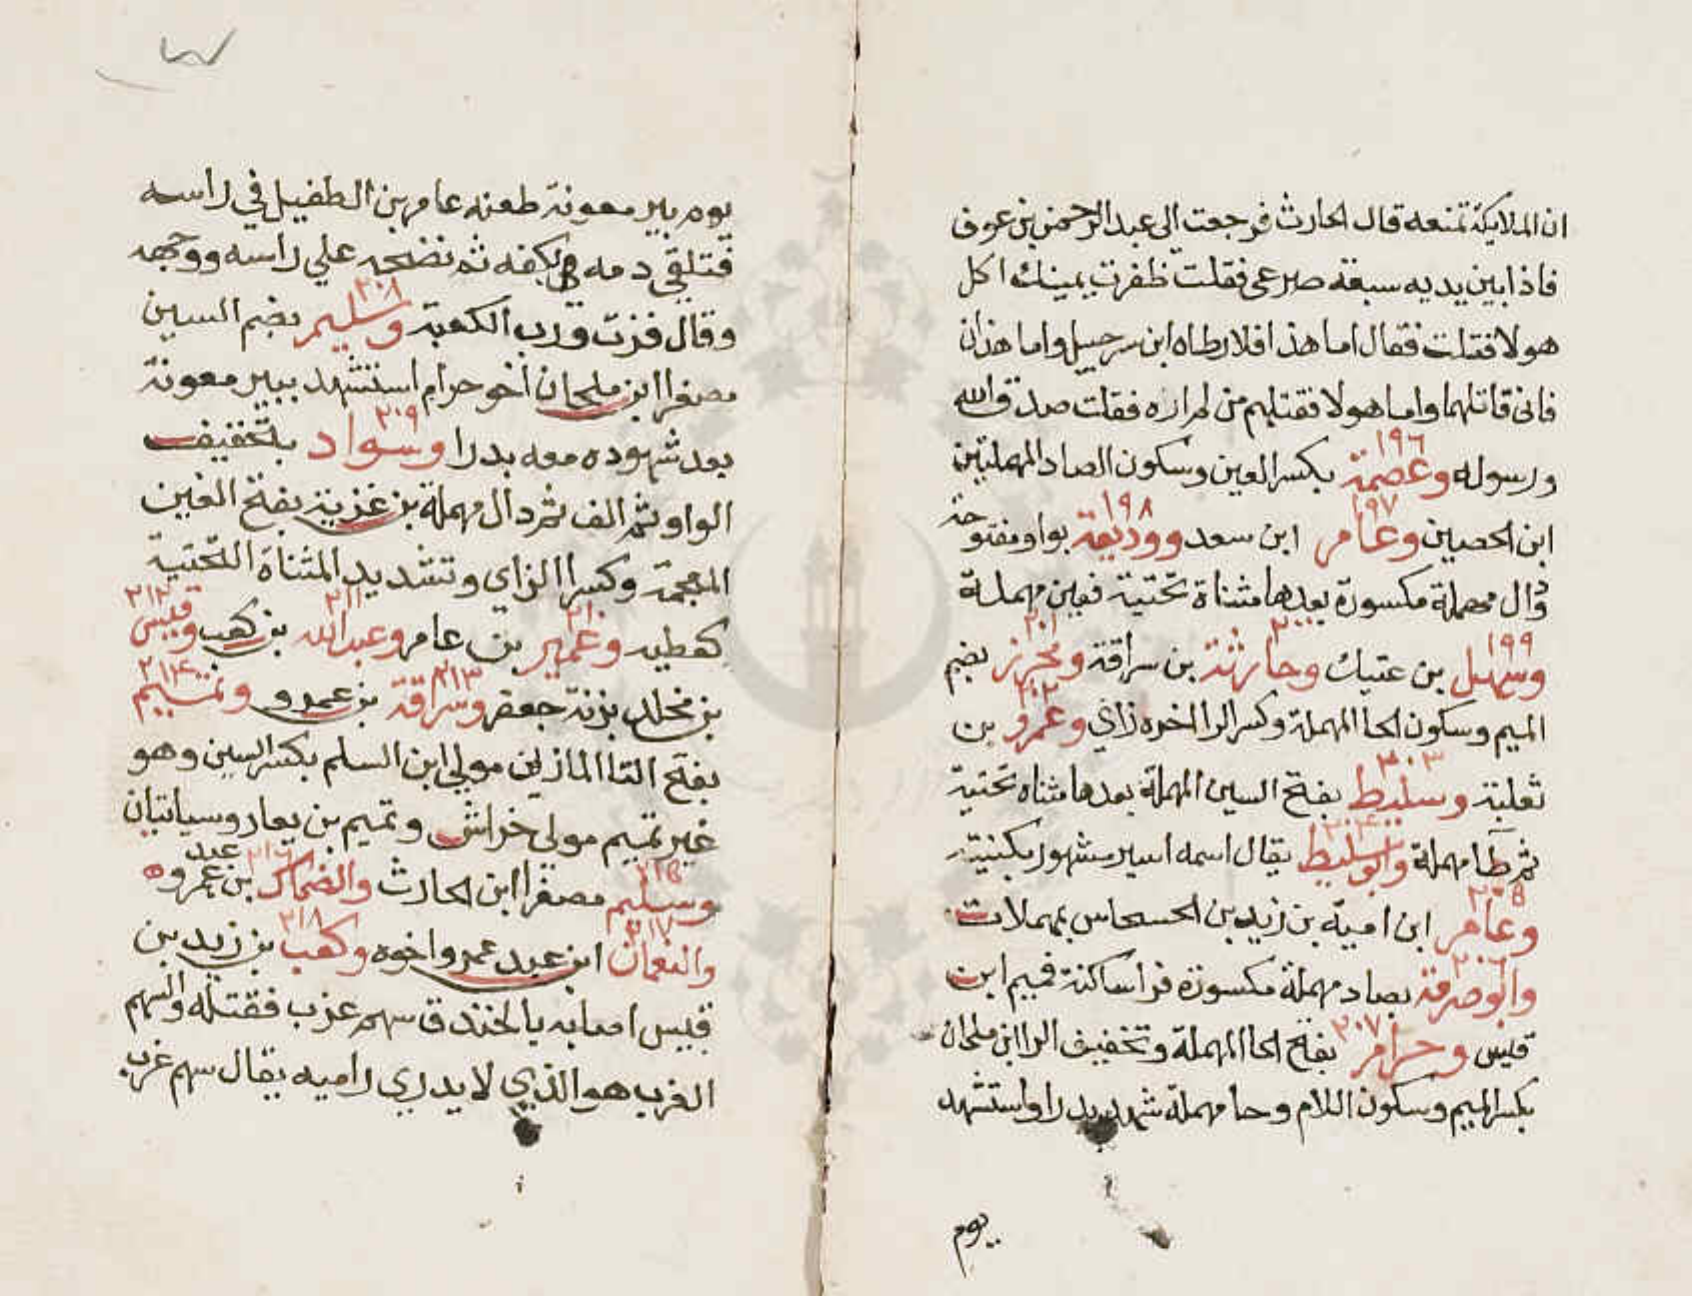 ان الملايكة تمنعه قال الحارث فرجعت الى عبد الرحمن بن عوف
فاذا بين يديه سبعة صرعى فقلت ظفرت يمينك اكل
هولا قتلت فقال اما هذا فلارطاه ابن سرحبيل واما هذان
فانى قاتلهما واما هولا فقتلهم من لم اره فقلت صدق الله
ورسوله وعصمة ١٩٦ بكسر العين وسكون الصاد المهملتين
ابن الحصين وعامر ١٩٧ ابن سعد ووديعة ١٩٨ بواو مفتوحة
ودال مهملة مكسورة بعدها مثناة تحتية فعين مهملة
وسهيل ١٩٩ بن عتيك وحارثة ٢٠٠ بن سراقة ومحرز ٢٠١ بضم
الميم وسكون الحا المهملة وكسر الرا اخره زاي وعمرو ٢٠٢ بن
ثعلبة وسليط ٢٠٣ بفتح السين المهملة بعدها مثناه تحتية
ثم طا مهملة وابو سليط ٢٠٤ يقال اسمه اسير مشهور بكنيته
وعامر ٢٠٥ ابن امية بن زيد بن الحسحاس بمهملات
وابو صرمة ٢٠٦ بصاد مهملة مكسورة فرا ساكنة فميم ابن
قيس وحرام ٢٠٧ بفتح الحا المهملة وتخفيف الرا ابن ملحان
بكسر الميم وسكون اللام وحا مهملة شهد بدرا واستشهد
يوم
يوم بير معونة طعنه عامر بن الطفيل في راسه
فتلقي دمه بكفه ثم نضحه علي راسه ووجهه
وقال فزت ورب الكعبة وسليم ٢٠٨ بضم السين
مصغرا ابن ملحان اخو حرام استشهد ببير معونة
بعد شهوده معه بدرا وسواد ٢٠٩ بتخفيف
الواو ثم الف ثم دال مهملة بن غزية بفتح الغين
المعجمة وكسر الزاي وتشديد المثناة التحتية
كعطيه وعمير ٢١٠ بن عامر وعبد الله ٢١١ بن كعب وقيس ٢١٢
بن مخلد بزنة جعفر وسراقة ٢١٣ بن عمرو وتميم ٢١٤
بفتح التا المازني مولي ابن السلم بكسر السين وهو
غير تميم مولى خراش وتميم بن يعار وسياتيان
وسليم ٢١٥ مصغرا ابن الحارث والضحاك ٢١٦ بن عبد عمرو
والنعمان ٢١٧ ابن عبد عمرو اخوه وكعب ٢١٨ بن زيد بن
قيس اصابه بالخندق سهم غرب فقتله والسهم
الغرب هو الذي لا يدري راميه يقال سهم غرب